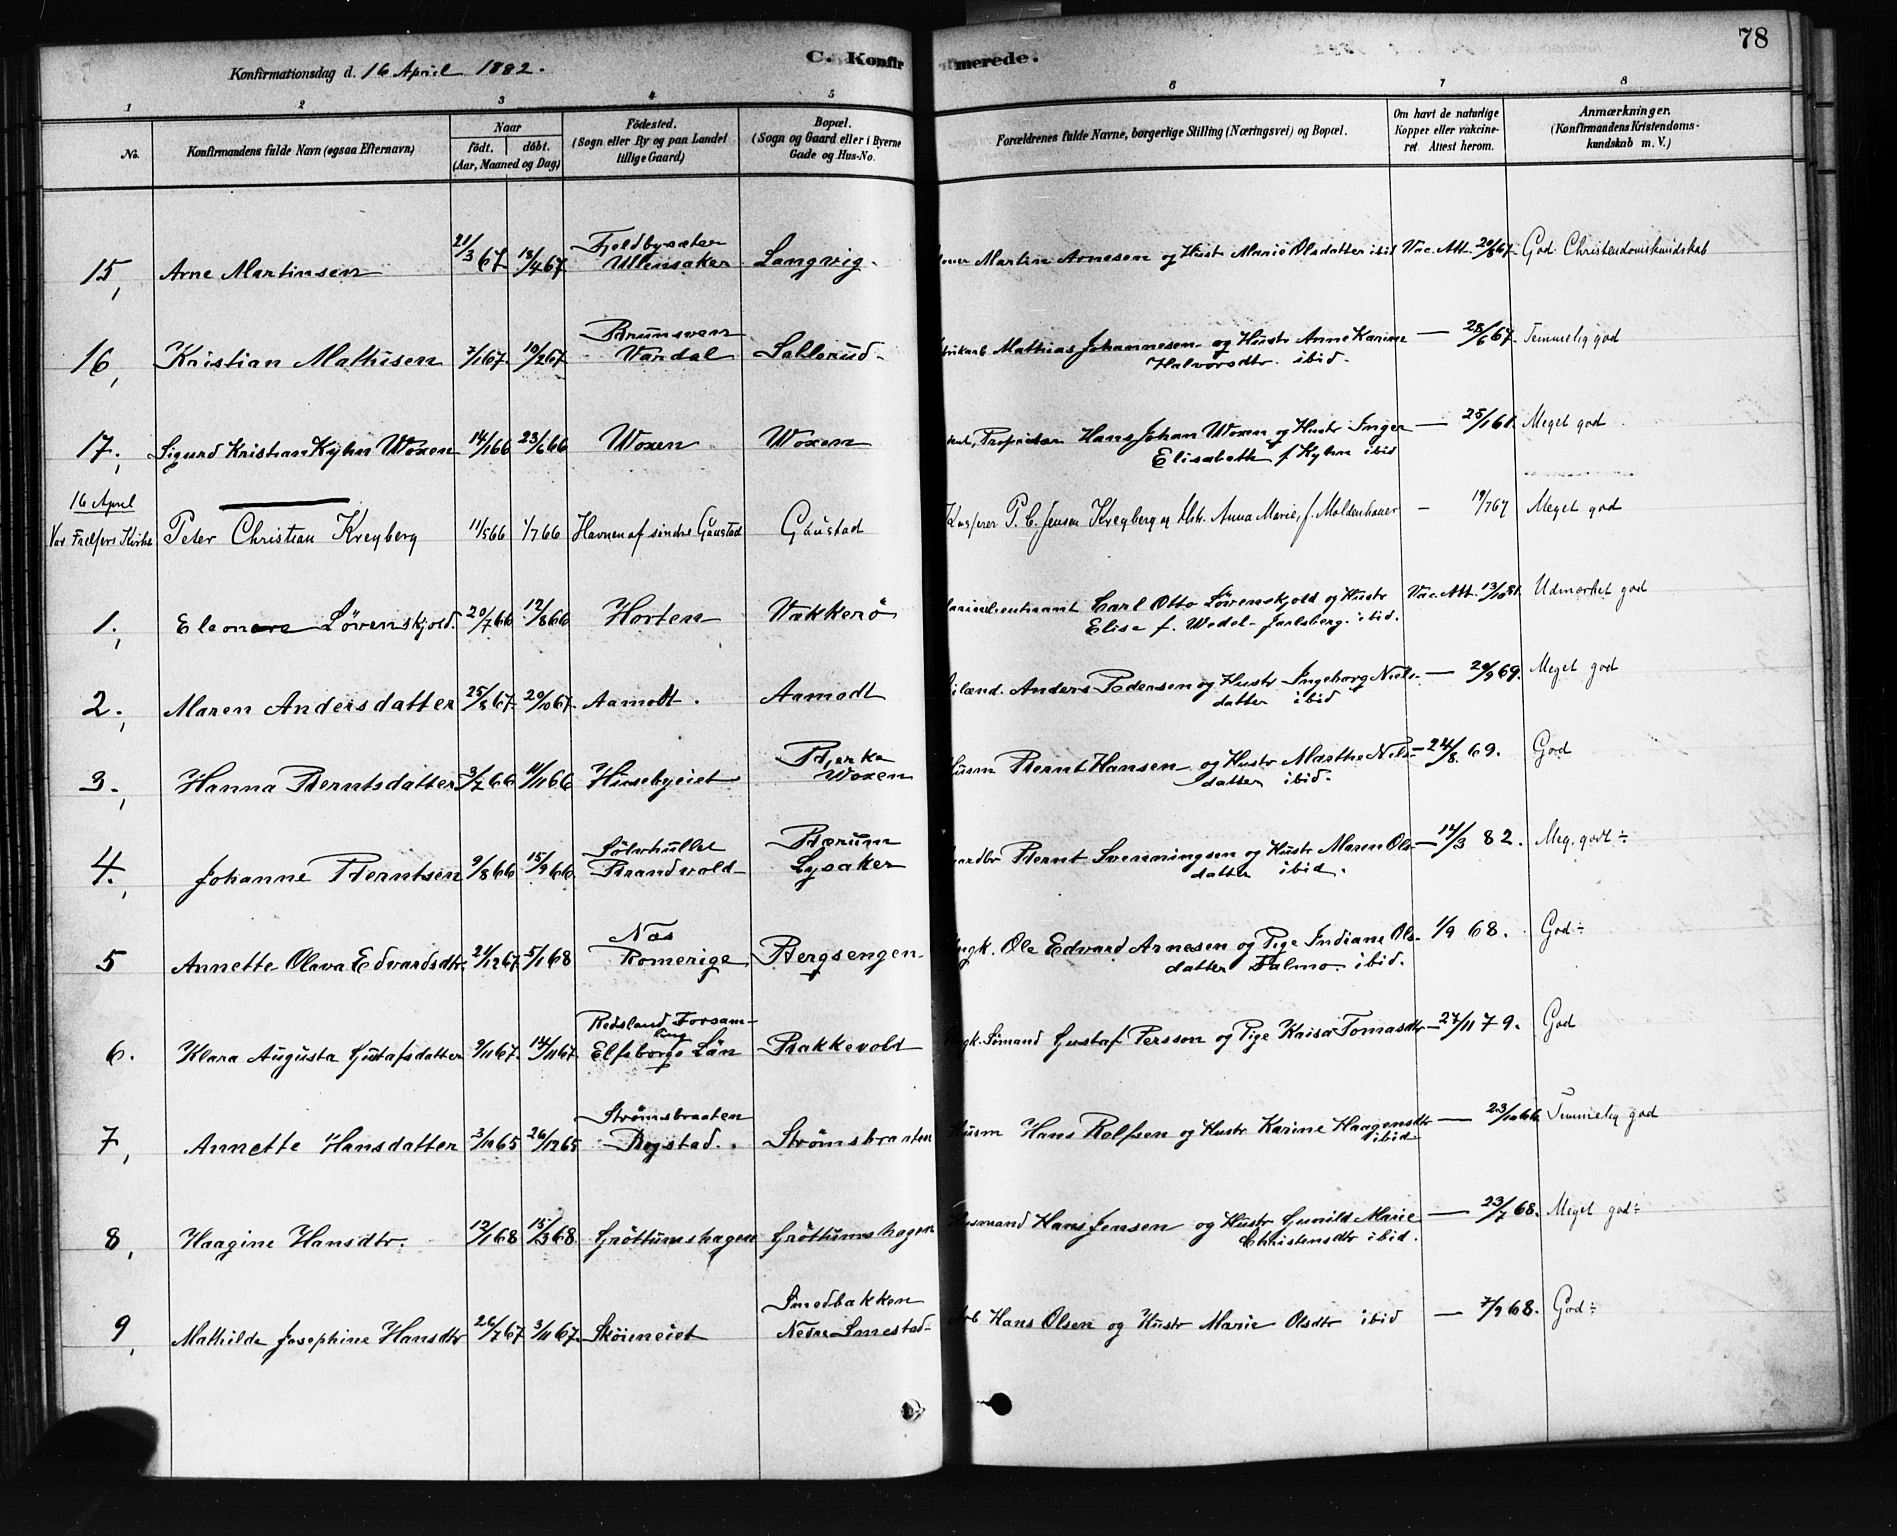 78
Konfirmationsdag d. 16 April 1882.
C. Konfirmerede.
1 2 3 4 5 6 7 8
No.
Konfirmandens fulde Navn (ogsaa Efternavn)
Naar
født. døbt.
(Aar, Maaned og Dag)
Fødested.
(Sogn eller By og paa Landet
tillige Gaard)
Bopæl.
(Sogn og Gaard eller i Byerne
Gade og Hus-No.
Forældrenes fulde Navne, borgerlige Stilling (Næringsvei) og Bopæl.
Om havt de naturlige
Kopper eller vakcine-
ret. Attest herom.
Anmærkninger.
(Konfirmandens Kristendoms-
kundskab m. V.)
Fjeldbysæter
15, Arne Martinsen 21/3 67 18/4 67 Ullinsaker Langvig. Martin Arnesen og Hust Marie Olsdatter ibid Vac. Att. 67 God Christendomskundskab
Brunsveen
16, Kristian Mathisen 7/1 67 10/2 67 Vardal Sollerud Mathias Johannesen og Hustr Anne Karine — 28/6 67 Temmelig god
Halvorsdtr. ibid.
17, Sigurd Kristian Kyhn Woxen 14/1 66 23/6 66 Woxen Woxen Proprietær Hans Johan Woxen og Hustr Inger — Meget god
Elisabeth f Kyhn ibid
16 April
Vor Frelsers Kirke Peter Christian Kreyberg 11/5 66 1/7 66 Havnen af søndre Gaustad Gaustad P. C. Jensen Kreyberg og Hstr. Anna Marie, f. Moldenhauer — 19/7 67 Meget god
1, Eleonore Løvenskjold. 20/7 66 12/8 66 Horten Vækkerö Carl Otto Løvenskjold og Hustr Vac. Att. Udmærket god
Elise f. Wedel-Jarlsberg. ibid.
2, Maren Andersdatter 67 20/10 67 Aamodt. Aamodt Anders Pedersen og Hustr Ingeborg Niels- — 69. Meget god
datter ibid
Bjerke
3, Hanna Berntsdatter 66 66 Husebyeiet Woxen Husm Bernt Hansen og Hustr Marthe Nels- — 24/8. 69. God
datter ibid.
Bærum
4, Johanne Berntsen 9/8 66 15/9 66 Brandvold Lysaker Bernt Svenningsen og Hustr Maren Ols- — 14/3 82. Meg. godt ÷
datter ibid.
Næs
5 Annette Olava Edvardsdtr. 21/12 67 5/1 68 Romerige Bergsengen Ungk. Ole Edvard Arnesen og Pige Indiane Ols- 1/9 68. God ÷
datter Falmo. ibid.
Redsland Forsam-
ling
6. Klara Augusta Gustafsdatter 9/11 67 14/11 67 Elfsborgs Län Bakkevold Ungk. Sømand Gustaf Persson og Pige Kaisa Tomasdtr — 27/11 79. God
Strømsbraaten
7, Annette Hansdatter 65 26/12 65 Bogstad. Strømsbraaten Husm Hans Rolfsen og Hustr Karine Haagensdtr — 23/10 66 Temmelig god
ibid
8, Haagine Hansdtr. 12/1 68 15/3 68 Gröttumshagen Gröttumshagen Husmand Hans Jensen og Hustr Gunild Marie — 23/7 68. Meget god ÷
Christensdtr ibid.
Smedbakken
9, Mathilde Josephine Hansdtr 26/7 67 3/11 67. Skøieneiet Nedre Smestad Arb Hans Olsen og Hustr Marie Olsdtr ibid — 7/9 68. God ÷